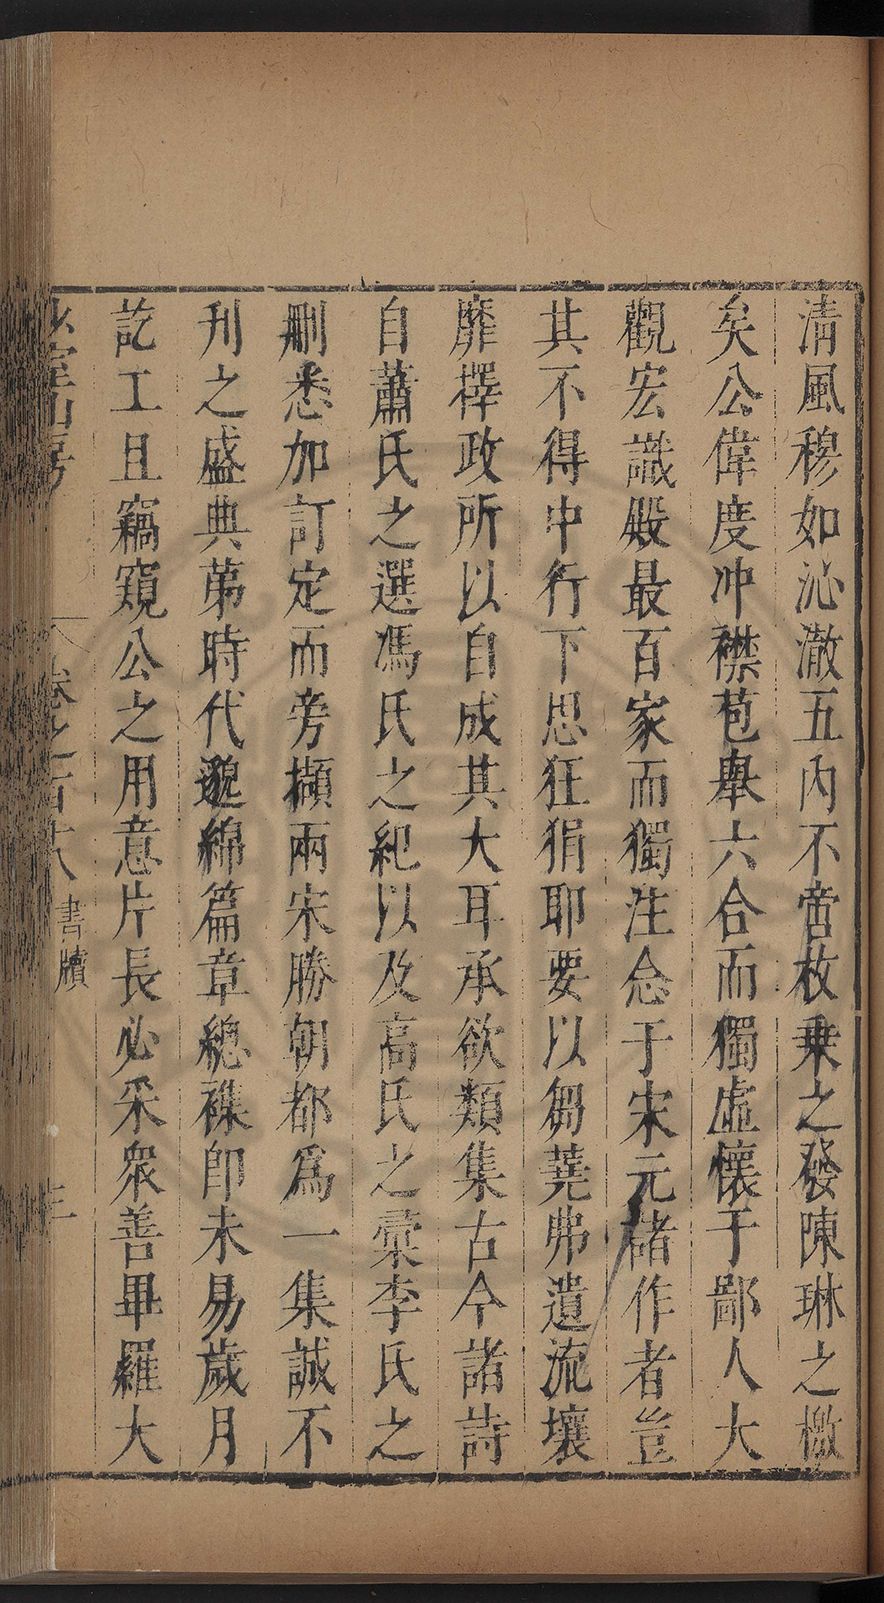 清風穆如沁澈五內不啻枚乗之發陳琳之檄
矣公偉度冲襟苞舉六合而獨虛懷于鄙人大
觀宏識殿最百家而獨注念于宋元諸作者豈
其不得中行下思狂狷耶要以芻蕘弗遺流壤
靡擇政所以自成其大耳承欲類集古今諸詩
自蕭氏之選馮氏之紀以及高氏之彙李氏之
刪悉加訂定而旁擷兩宋勝朝都爲一集誠不
刋之盛典第時代邈綿篇章總襍卽未易歲月
訖工且竊窺公之用意片長必采衆善畢羅大
少室山房 卷之百十八 書牘 三